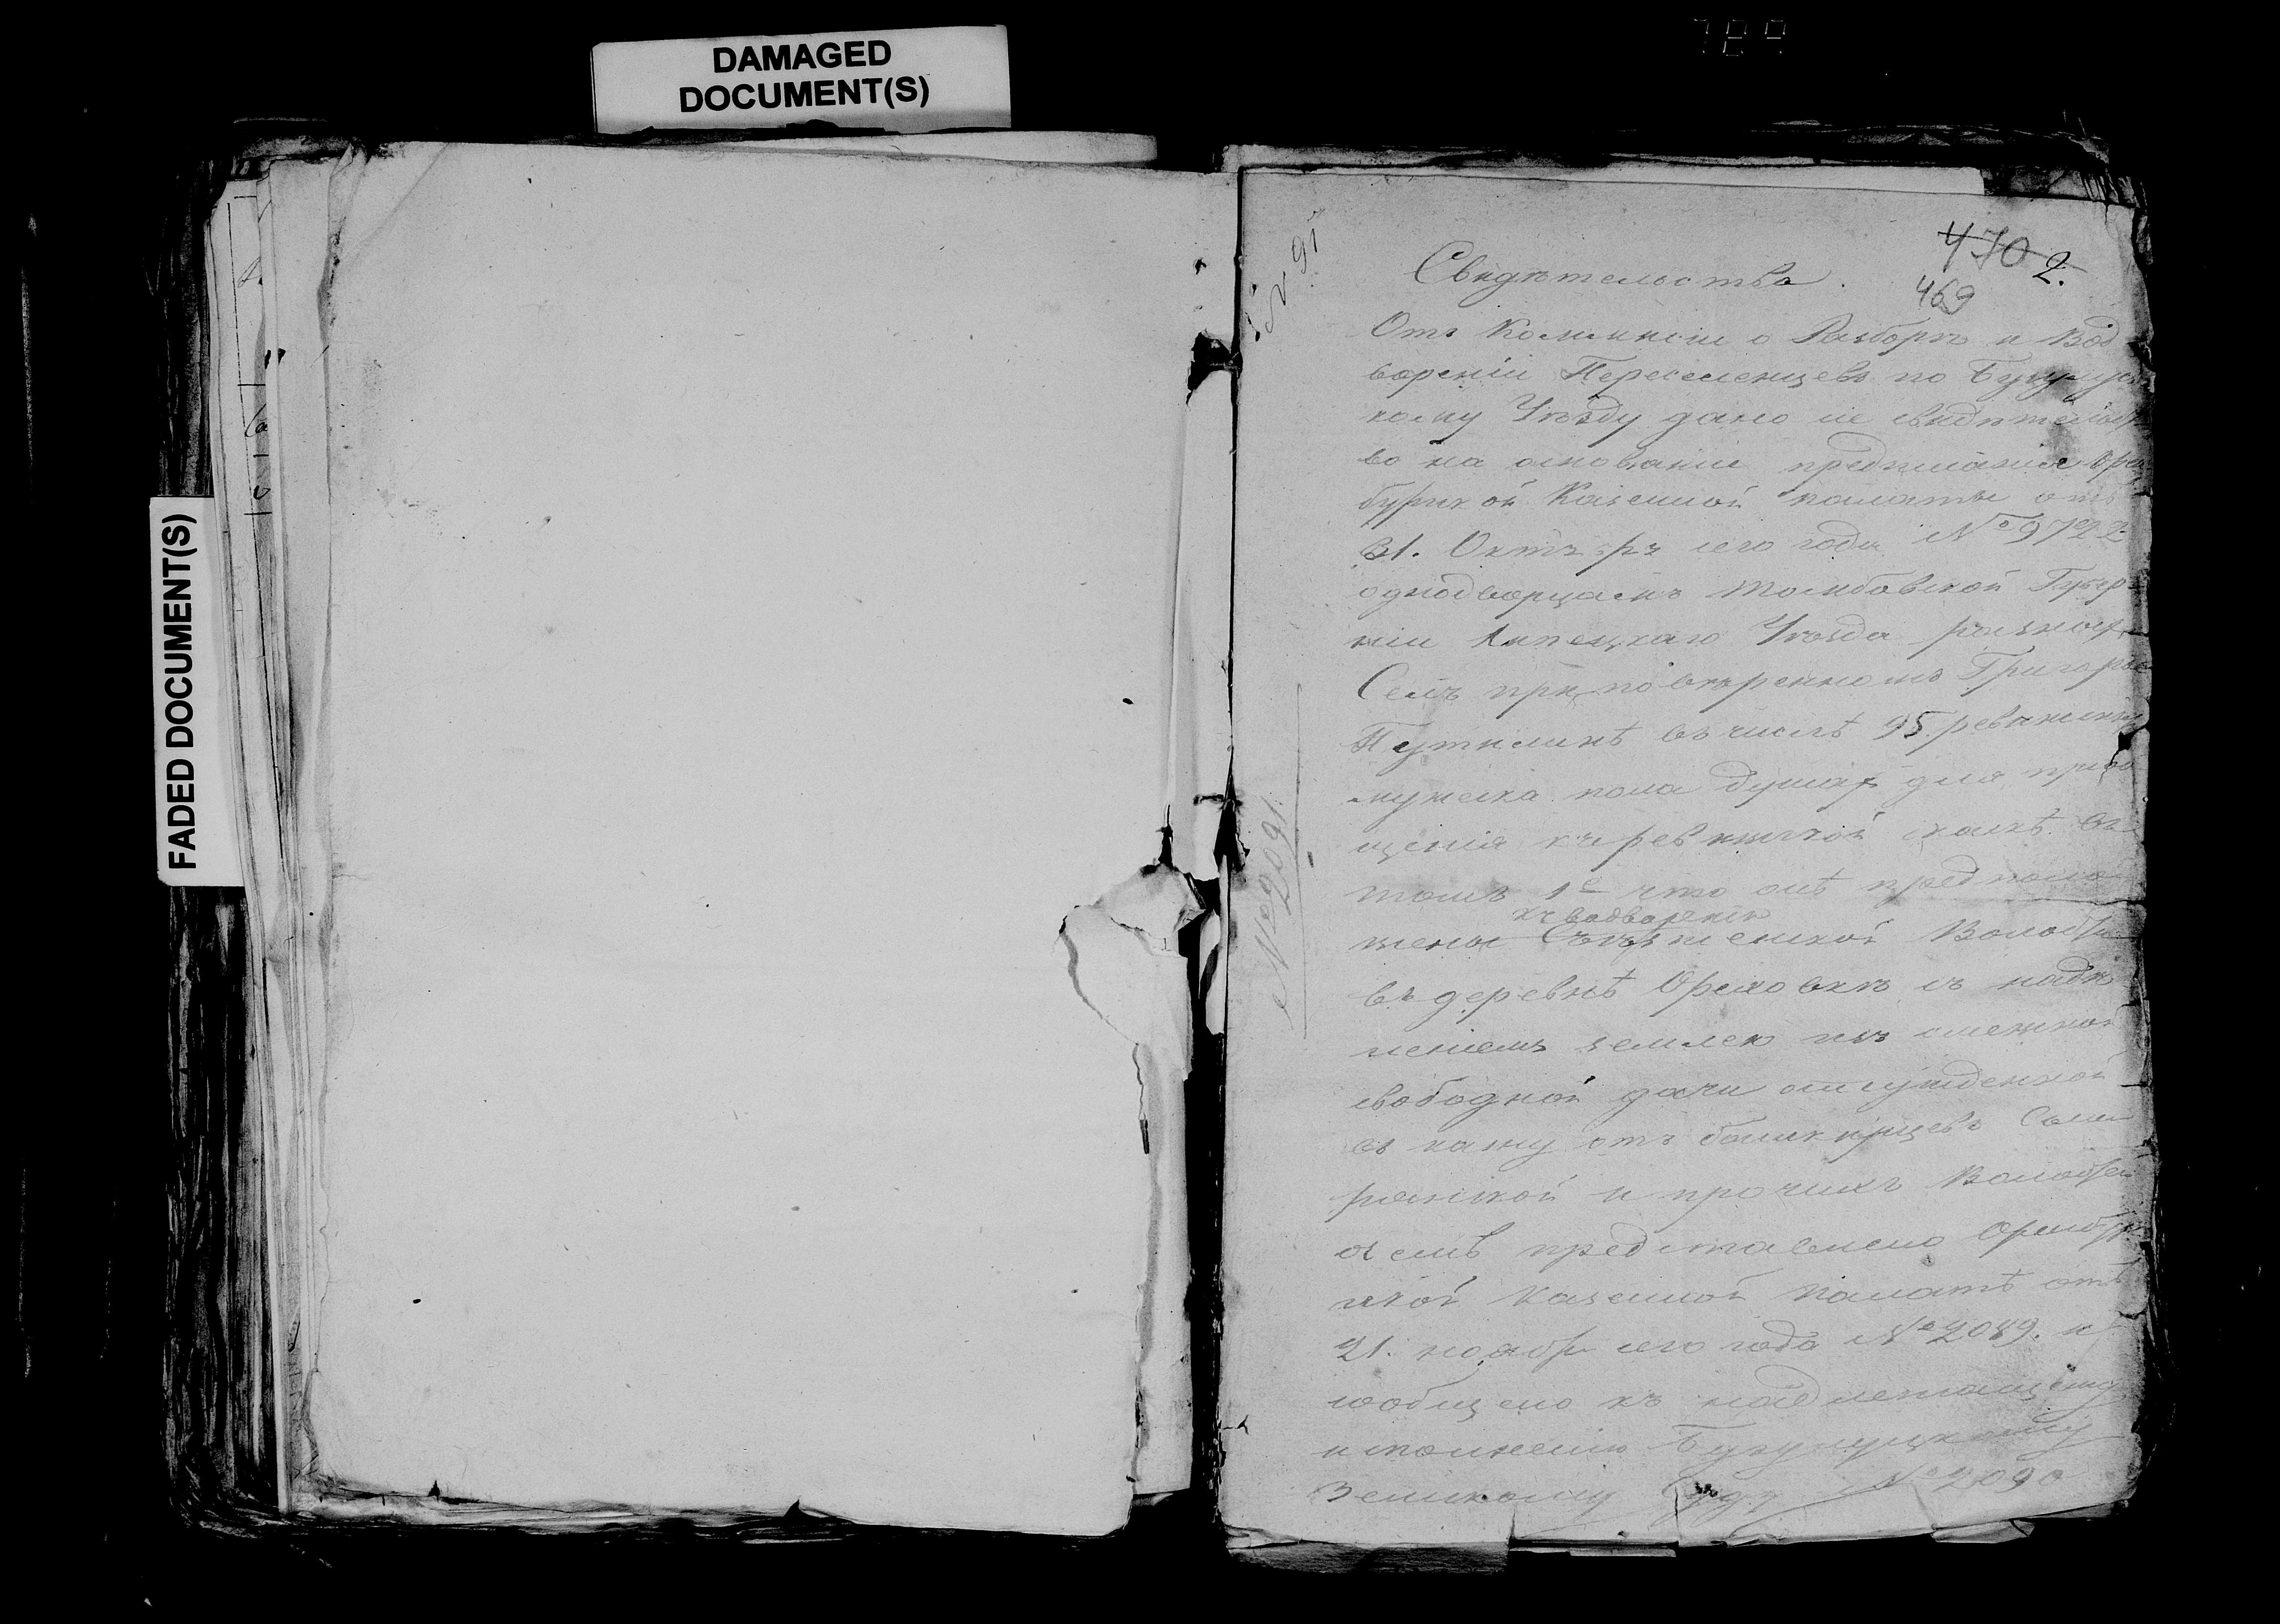 789
DAMAGED
DOCUMENT(S)
FADED DOCUMENT(S)
№ 91
470 2.
Свидѣтельство.
469
Отъ Коммисіи о Разборѣ и Вод
вореніи Переселенцевъ по Бугурус
кому Уѣзду дано сіе свидѣтельст
во на основаніи предписанія Орен
бургской Казенной палаты отъ
31. Октября сего года № 9722.
однодворцамъ Тамбовской Губер
ніи Липецкаго Уѣзда разныхъ
Селъ при повѣренномъ Григорье
Путилинѣ въ числѣ 95 ревижскихъ
мужеска пола душах для прило
щенія къ ревижской скаскѣ въ
томъ 1е что онѣ предполо
къ водворенію
жены Волости
въ деревнѣ Ореховкѣ съ надѣ
леніемъ землею изъ смежной
свободной дачи отсужденной
въ казну отъ башкирцевъ
и прочихъ Волостей
о чемъ представлено Оренбур
гской Казенной Палатѣ отъ
21. ноября сего года № 2089. и
сообщено къ надлежащему
исполненію
Земскому Суду № 2090
№ 2091.